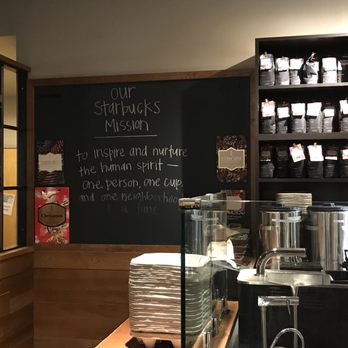 our
Starbucks
Mission
to inspire and nurture
the human spirit —
one person, one cup,
and one neighborhood
at a time